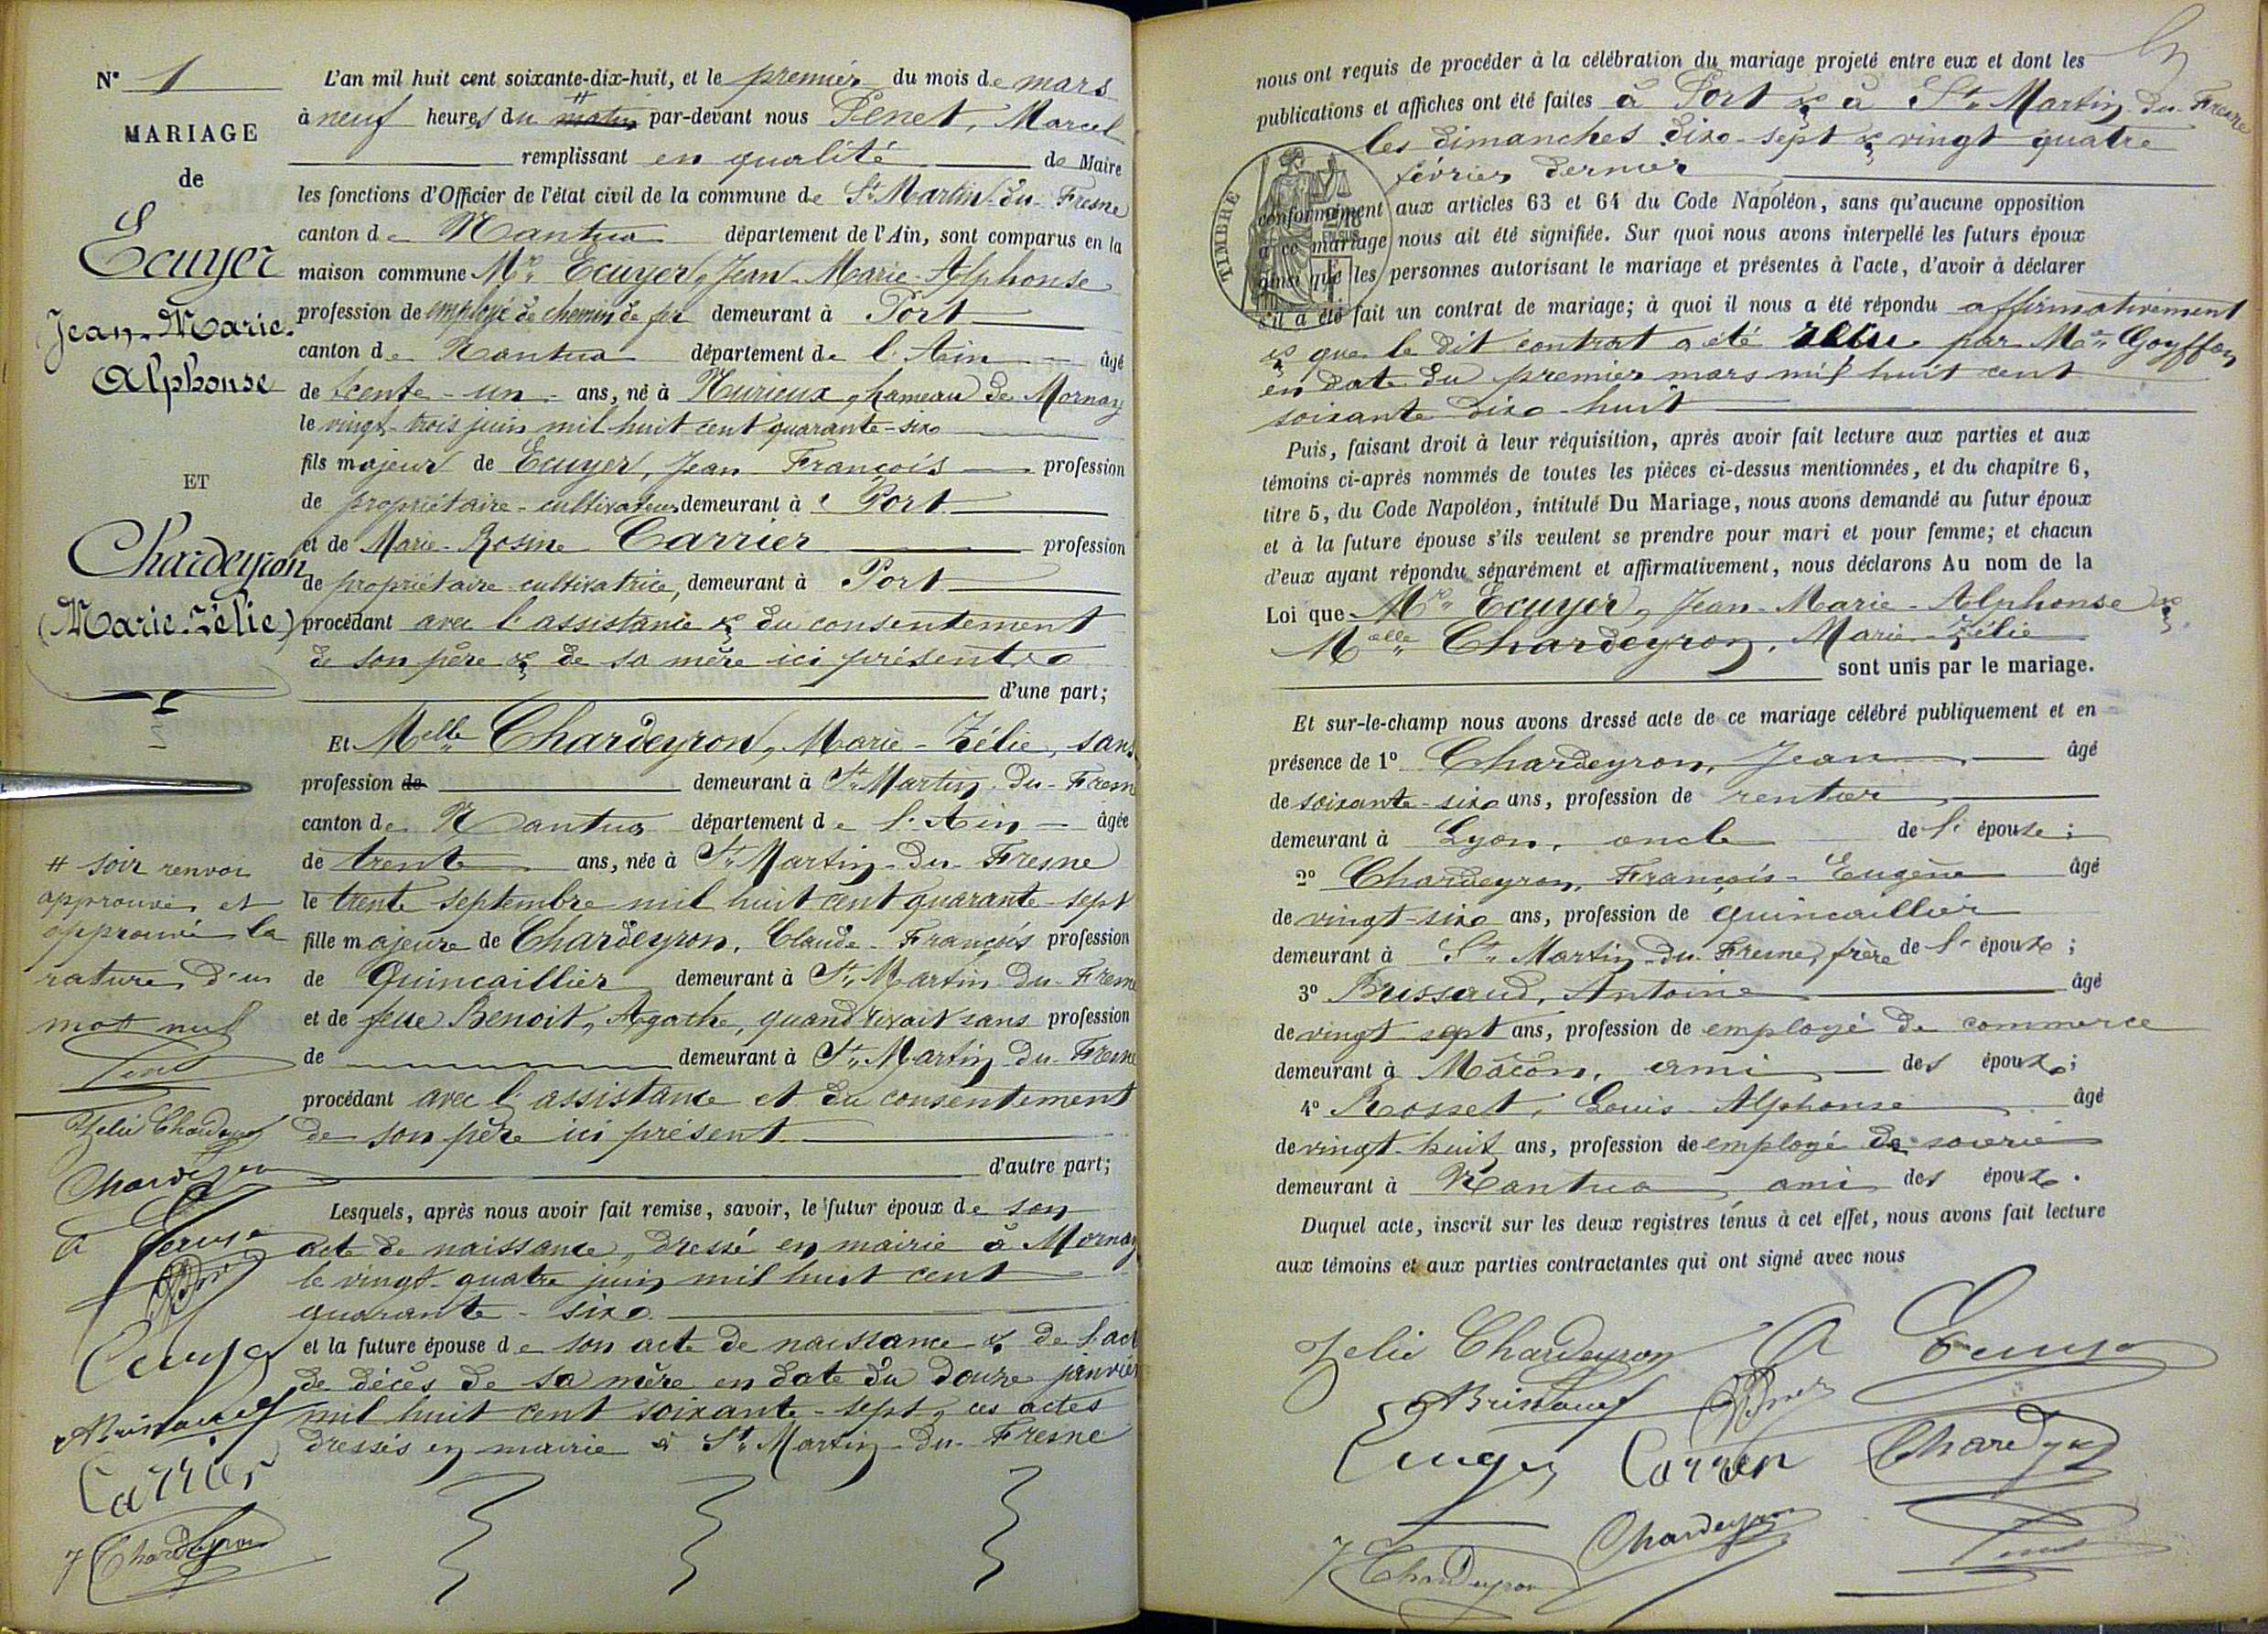 N° 1
MARIAGE
de
Ecuyer
Jean-Marie-
Alphonse
ET
Chardeyron
(Marie-Zélie)
# soir renvoi
approuvé, et
approuvé la
rature d'un
mot nul
Zelie Chardeyron
Chardeyron
A Ecuyer
Ecuyer
ABrissaud
Carrier
Chardeyron
L'an mil huit cent soixante-dix-huit, et le premier du mois de mars
à neuf heures du matin # par-devant nous Penet, Marcel
remplissant en qualité de Maire
les fonctions d'Officier de l'état civil de la commune de St Martin-du-Fresne
canton de Nantua département de l'Ain, sont comparus en la
maison commune Mr. Ecuyer, Jean-Marie-Alphonse
profession de employé de chemin de fer demeurant à Port
canton de Nantua département de l'Ain âgé
de trente-un ans, né à Nurieux, hameau de Mornay
le vingt-trois juin mil huit cent quarante-six
fils majeur de Ecuyer, Jean François profession
de propriétaire-cultivateur demeurant à Port
et de Marie-Rosine Carrier profession
de propriétaire cultivatrice, demeurant à Port
procédant avec l'assistance & du consentement
de son père & de sa mère ici présents
d'une part;
Et Melle Chardeyron, Marie-Zélie, sans
profession de demeurant à St Martin-du-Fresne
canton de Nantua département de l'Ain âgée
de trente ans, née à St Martin-du-Fresne
le trente septembre mil huit cent quarante-sept
fille majeure de Chardeyron, Claude-François profession
de Quincaillier demeurant à St Martin-du-Fresne
et de feue Benoit, Agathe, quand vivait sans profession
de demeurant à St Martin-du-Fresne
procédant avec l'assistance et du consentement
de son père ici présent
d'autre part;
Lesquels, après nous avoir fait remise, savoir, le futur époux de son
acte de naissance, dressé en mairie à Mornay
le vingt-quatre juin mil huit cent
quarante-six
et la future épouse de son acte de naissance & de l'acte
de décès de sa mère en date du douze janvier
mil huit cent soixante-sept, ces actes
dressés en mairie à St Martin-du-Fresne
nous ont requis de procéder à la célébration du mariage projeté entre eux et dont les
publications et affiches ont été faites à Port & à St Martin-du-Fresne
les dimanches dix-sept & vingt quatre
février dernier
TIMBRE
conformément aux articles 63 et 64 du Code Napoléon, sans qu'aucune opposition
à ce mariage nous ait été signifiée. Sur quoi nous avons interpellé les futurs époux
ainsi que les personnes autorisant le mariage et présentes à l'acte, d'avoir à déclarer
s'il a été fait un contrat de mariage; à quoi il nous a été répondu affirmativement
& que le dit contrat a été reçu par Me Goyffon
en date du premier mars mil huit cent
soixante dix-huit
Puis, faisant droit à leur réquisition, après avoir fait lecture aux parties et aux
témoins ci-après nommés de toutes les pièces ci-dessus mentionnées, et du chapitre 6,
titre 5, du Code Napoléon, intitulé Du Mariage, nous avons demandé au futur époux
et à la future épouse s'ils veulent se prendre pour mari et pour femme; et chacun
d'eux ayant répondu séparément et affirmativement, nous déclarons Au nom de la
Loi que Mr. Ecuyer, Jean-Marie-Alphonse &
Melle Chardeyron, Marie-Zélie
sont unis par le mariage.
Et sur-le-champ nous avons dressé acte de ce mariage célébré publiquement et en
présence de 1° Chardeyron, Jean âgé
de soixante-six ans, profession de rentier
demeurant à Lyon, oncle de l'épouse;
2° Chardeyron, François-Eugène âgé
de vingt-six ans, profession de quincaillier
demeurant à St Martin-du-Fresne, frère de l'épouse;
3° Brissaud, Antoine âgé
de vingt sept ans, profession de employé de commerce
demeurant à Mâcon, ami des époux;
4° Rosset, Louis-Alphonse âgé
de vingt-huit ans, profession de employé de soierie
demeurant à Nantua ami des époux.
Duquel acte, inscrit sur les deux registres tenus à cet effet, nous avons fait lecture
aux témoins et aux parties contractantes qui ont signé avec nous
Zelie Chardeyron A Ecuyer
ABrissaud
Ecuyer Carrier Chardeyron
Chardeyron Chardeyron Penet